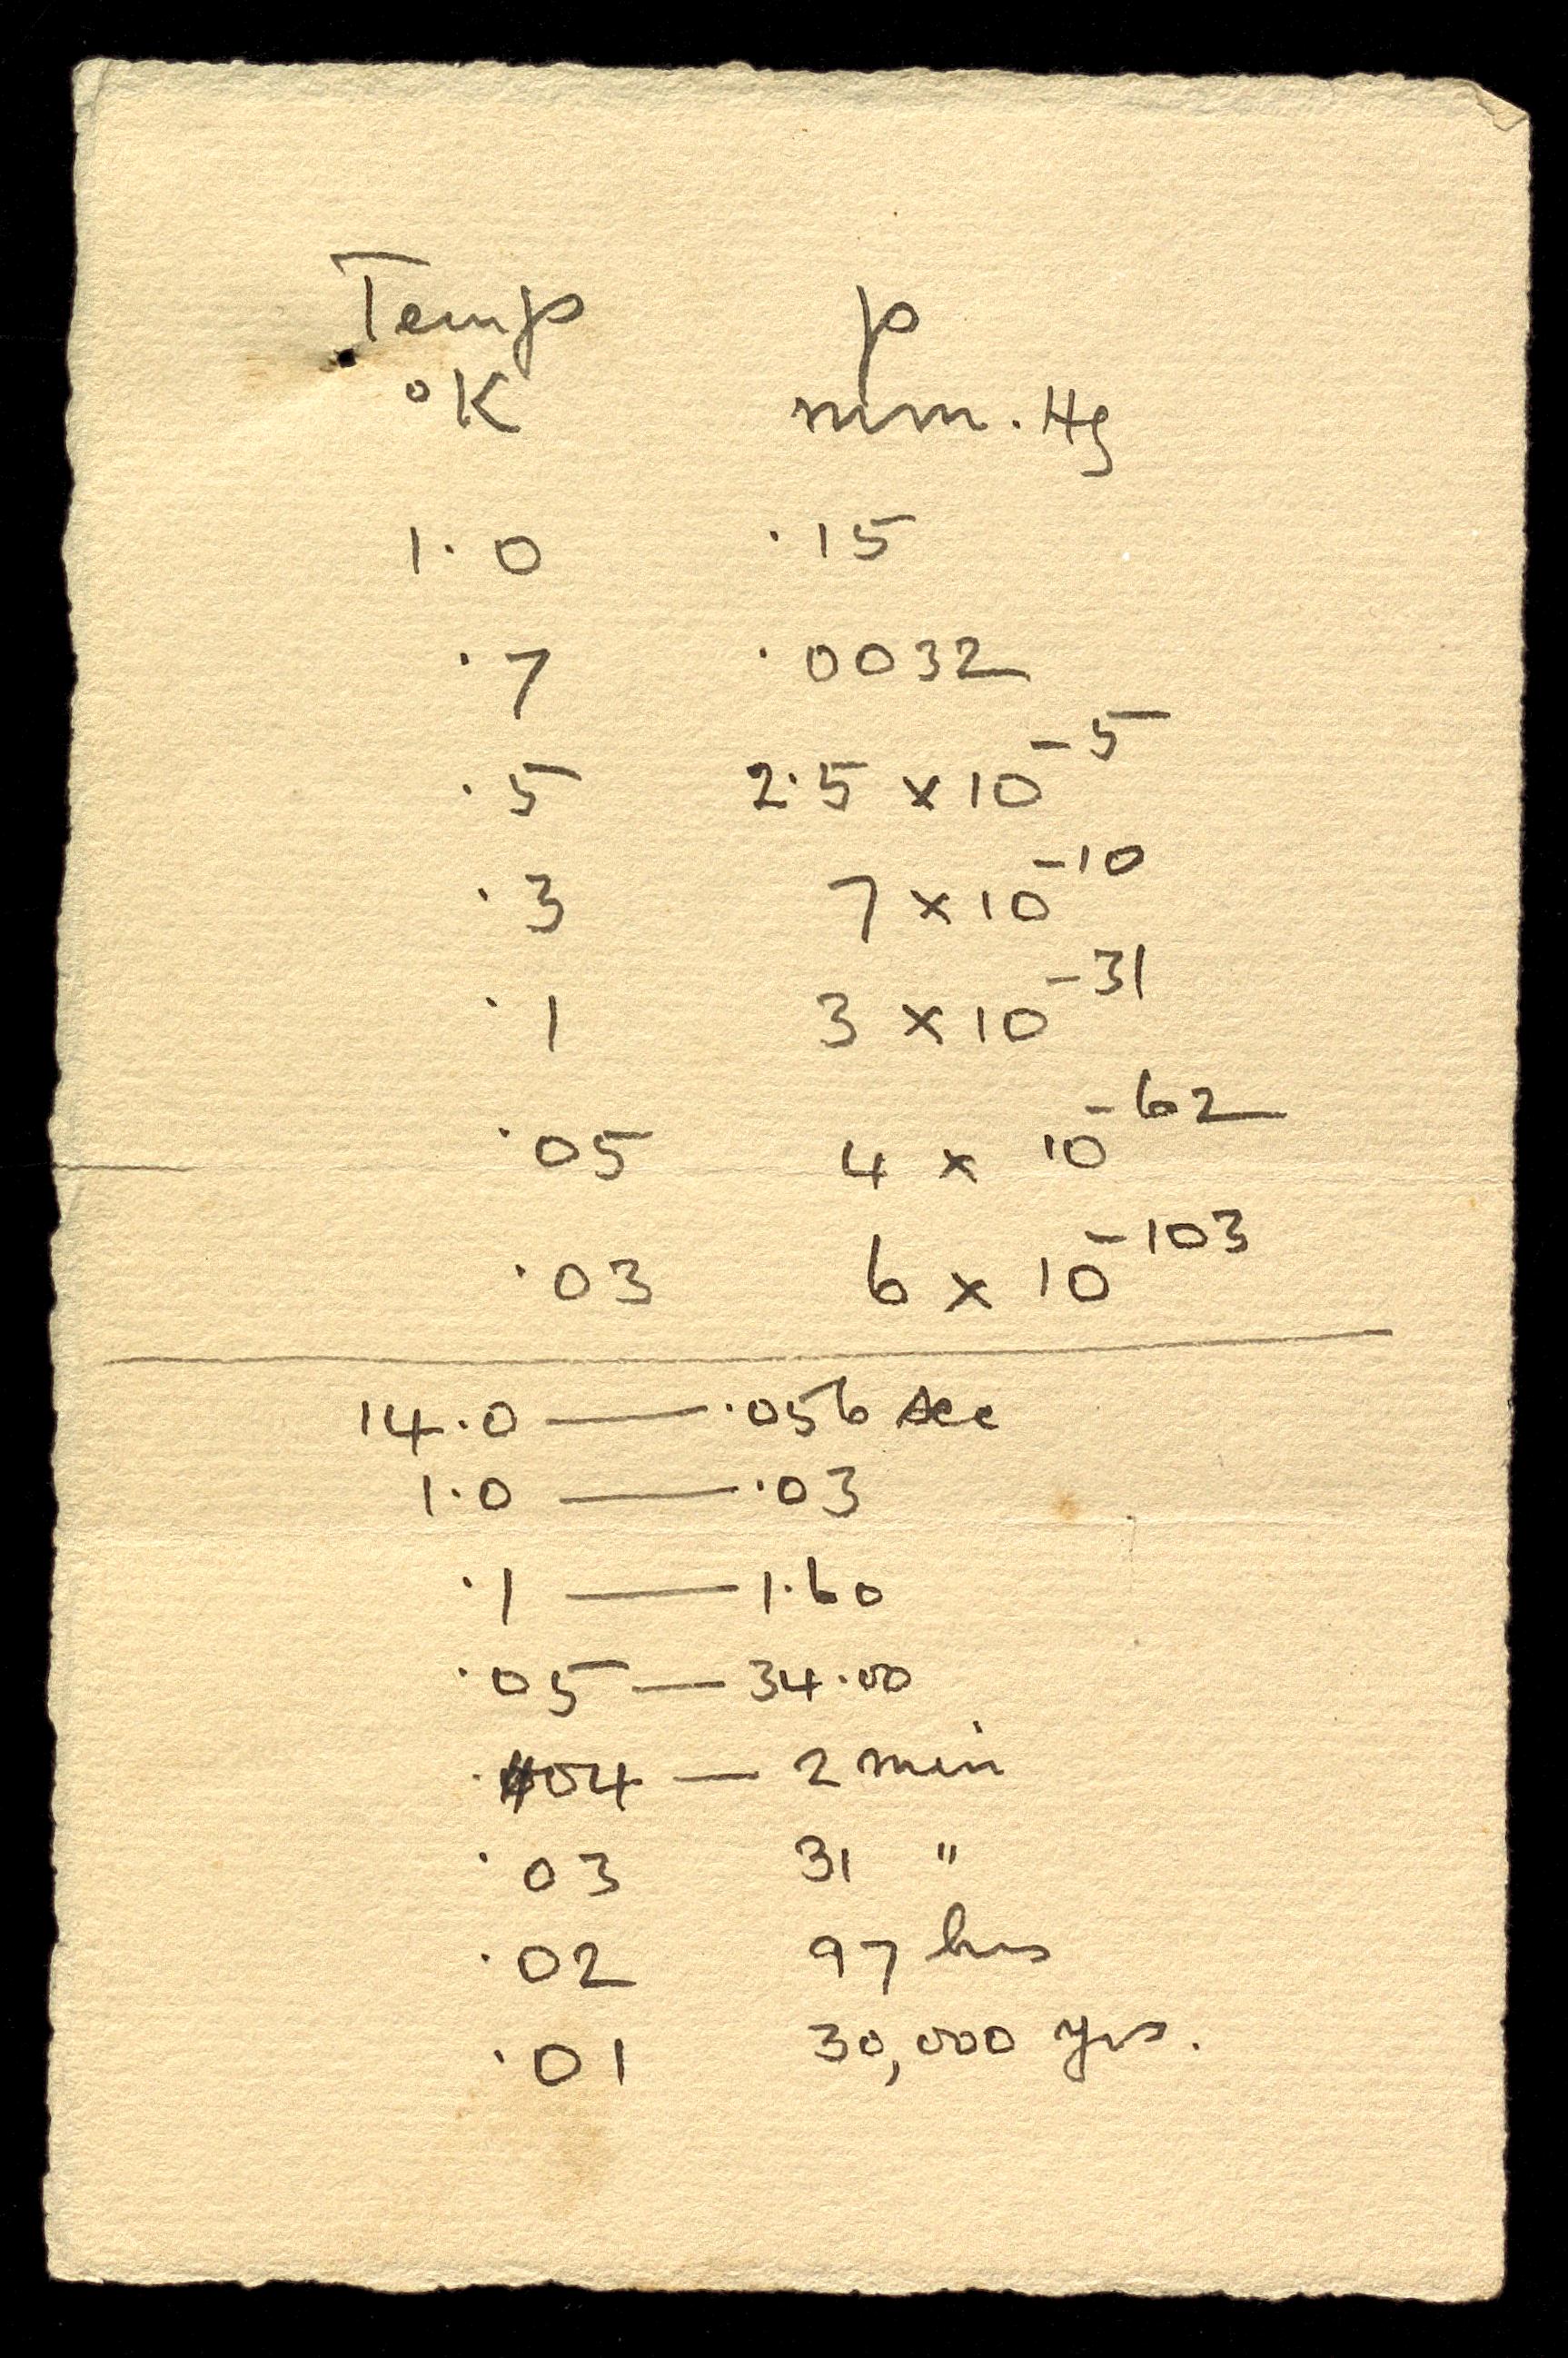 Temp p
°K mm. Hg
1.0 .15
.7 .0032
.5 2.5 x 10⁻⁵
.3 7 x 10⁻¹⁰
.1 3 x 10⁻³¹
.05 4 x 10⁻⁶²
.03 6 x 10⁻¹⁰³
14.0 — .056 sec
1.0 — .03
.1 — 1.60
.05 — 34.00
.04 — 2 min
.03 31 "
.02 97 hrs
.01 30,000 yrs.